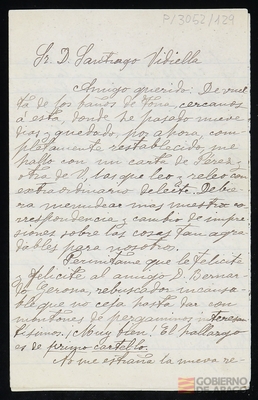 P/3052/129
Sr. D. Santiago Vidiella
Amigo querido: De vuel
ta de los baños de Tona, cercanos
a esta, donde he pasado nueve
dias y quedado, por ahora, com
pletamente restablecido, me
hallo con un carta de Perez y
otra de V, las que leo y releo con
extraordinario deleite. Debie
ra menudear mas nuestra co
rrespondencia y cambio de impre
siones sobre las cosas tan agra
dables para nosotros.
Permitame que le felicite
y felicite al amigo D. Bernar
do Cerona, rebuscador incansa
ble que no cesa hasta dar con
montones de pergaminos interesan
tisimos. ¡Muy bien! El hallazgo
es de primo cartello.
No me estraña la nueva re-
GOBIERNO
DE ARAGON